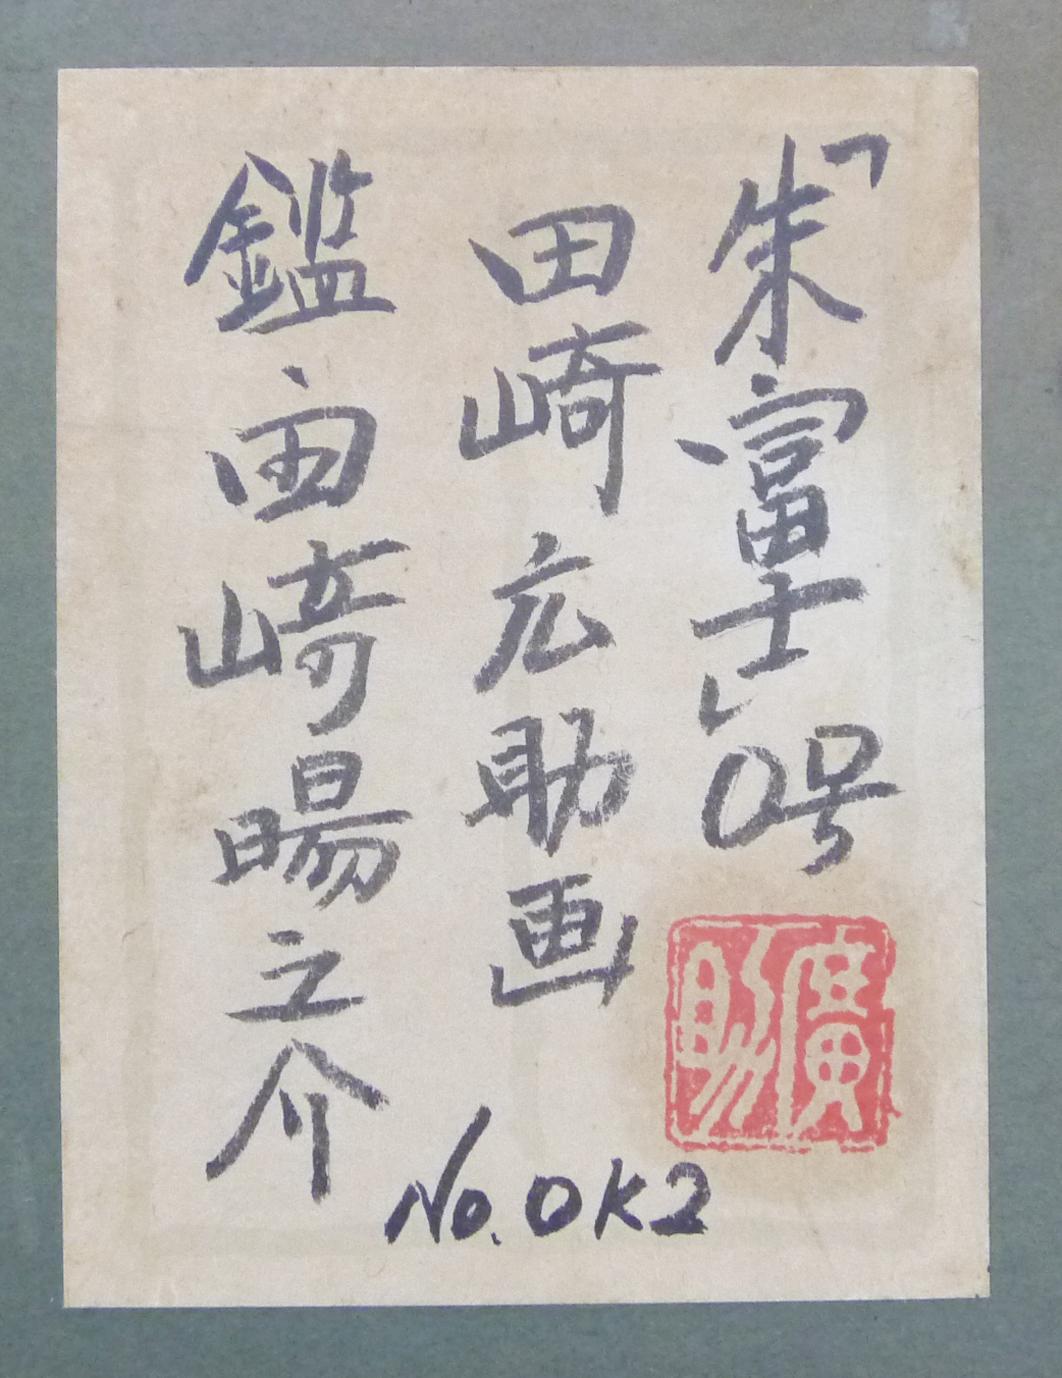 「朱富士」0号
田崎広助画
鑑 田崎暘之介
廣助
No. OK2